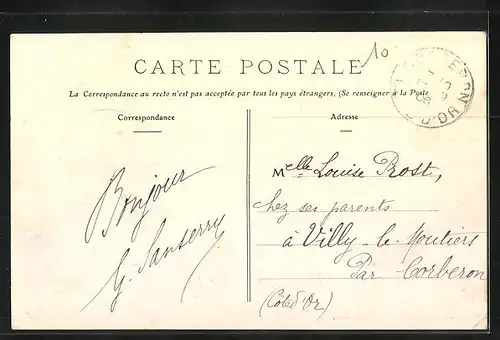 10
CARTE POSTALE
La Correspondance au recto n'est pas acceptée par tous les pays étrangers. (Se renseigner à la Poste
Correspondance
Adresse
Bonjour
Melle Louise Prost,
chez ses parents
à Villy-le-Moutiers
Par Corberon
(Côte d'Or)